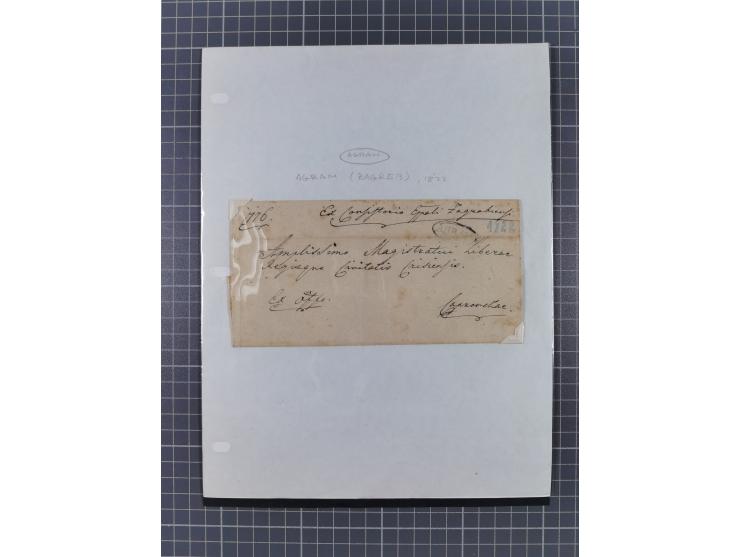 AGRAM
AGRAM (ZAGREB), 1822
776.
Ex Consistorio Eppali Zagrabiensi
1822
Amplissimo Magistratui Liberae
Regiaeque Civitatis Crisiensis.
Ex Offo.